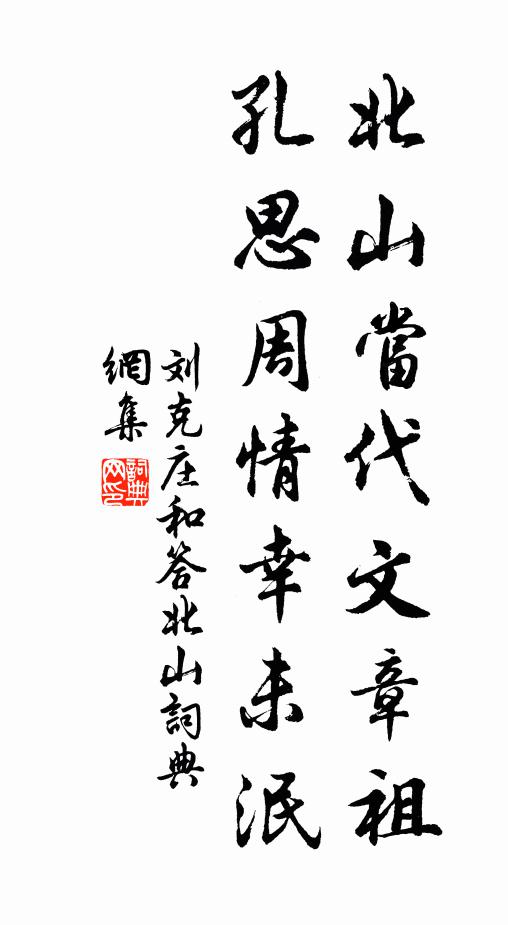 北山當代文章祖
孔思周情幸未泯
刘克庄和答北山詞典
網集
詞典網印